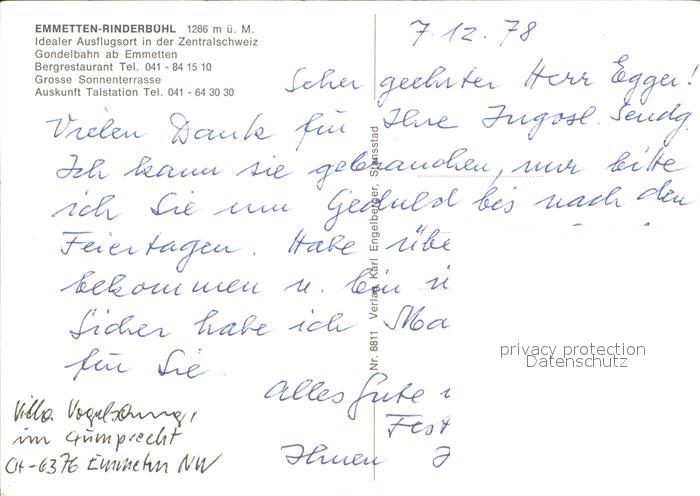 EMMETTEN-RINDERBÜHL 1286 m ü. M.
Idealer Ausflugsort in der Zentralschweiz
Gondelbahn ab Emmetten
Bergrestaurant Tel. 041 - 84 15 10
Grosse Sonnenterrasse
Auskunft Talstation Tel. 041 - 64 30 30
7.12.78
Sehr geehrter Herr Egger!
Vielen Dank für Ihre Jugosl. Sendg
Ich kann sie gebrauchen, nur bitte
ich Sie um Geduld bis nach den
Feiertagen. Habe übe
bekommen u. bin ü
Sicher habe ich Ma
für Sie.
Alles Gute
Fest
Ihnen
Villa Vogelsang,
im Gumprecht
CH-6376 Emmetten NW
Nr. 8811 Verlag Karl Engelberger, Stansstad
privacy protection
Datenschutz